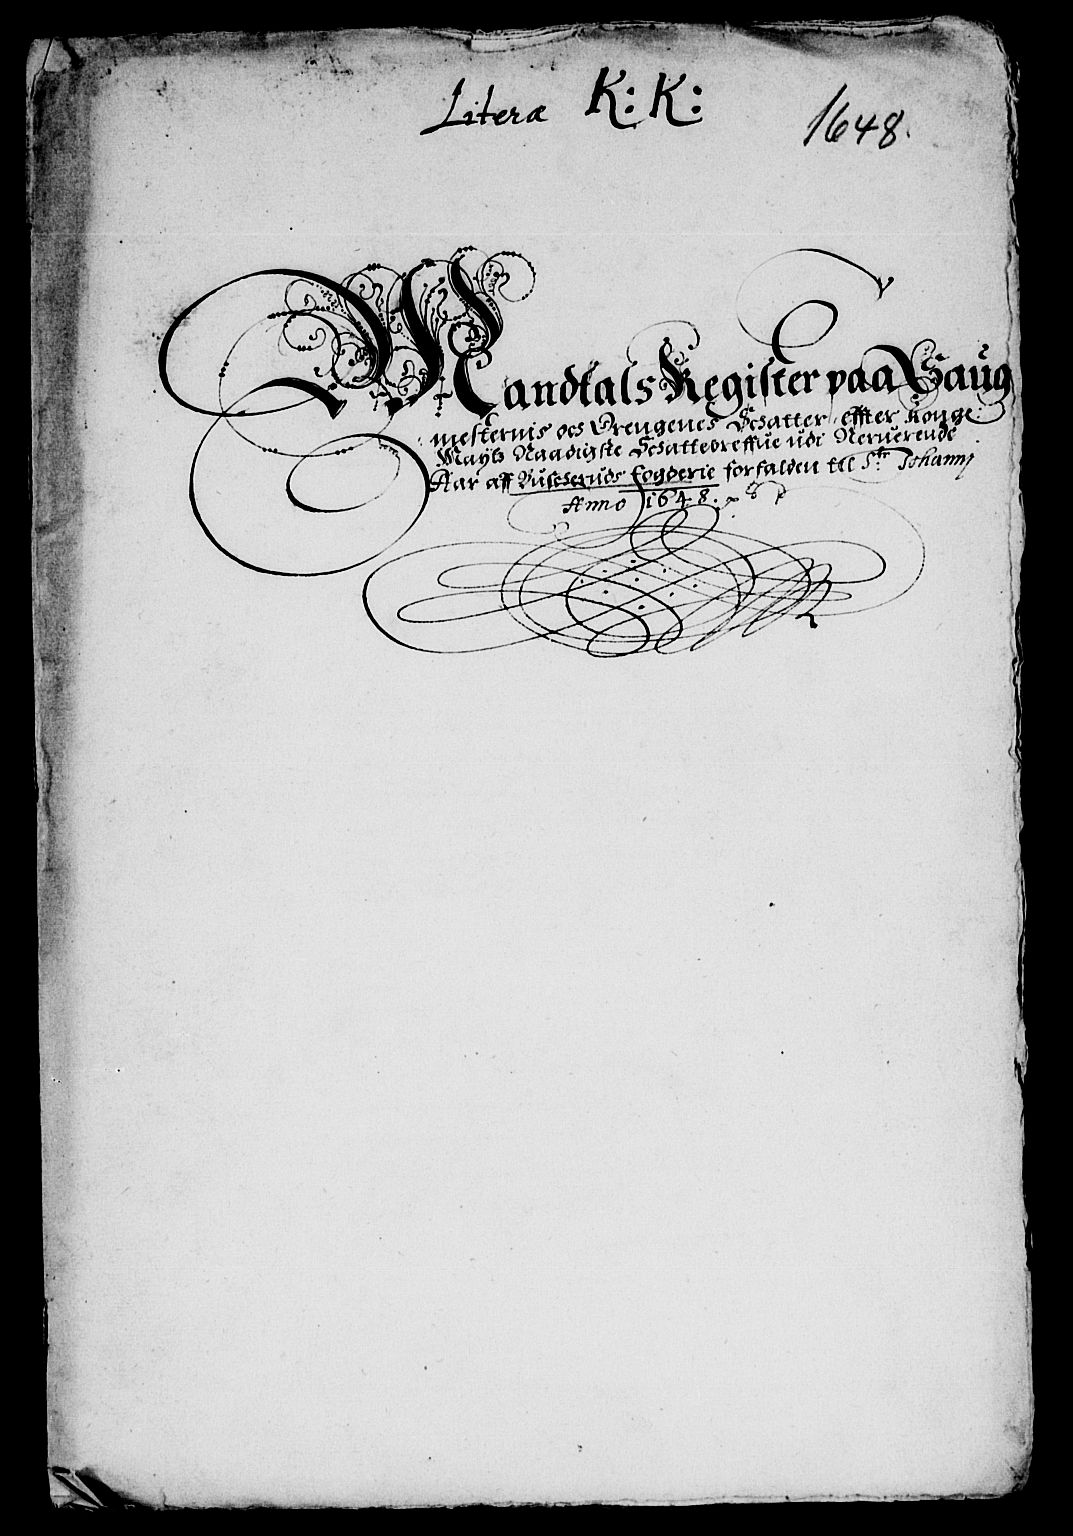 Literæ K: K:
1648.
Mandtals Register paa Saug
mesternis och Drengenes Schatter effter Konge:
Mayts Naadigste Schattebreffue udi Nerverende
Aar aff Buscheruds Fogderie forfalden til Sti Johannj
Anno 1648.